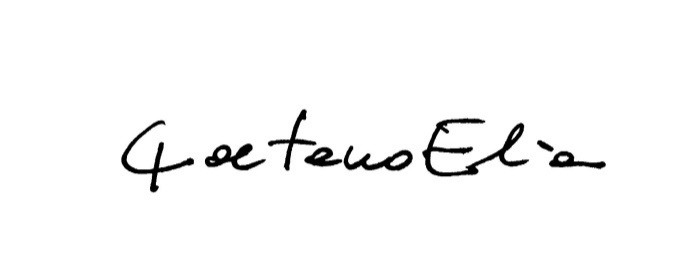 Gaetano Elia